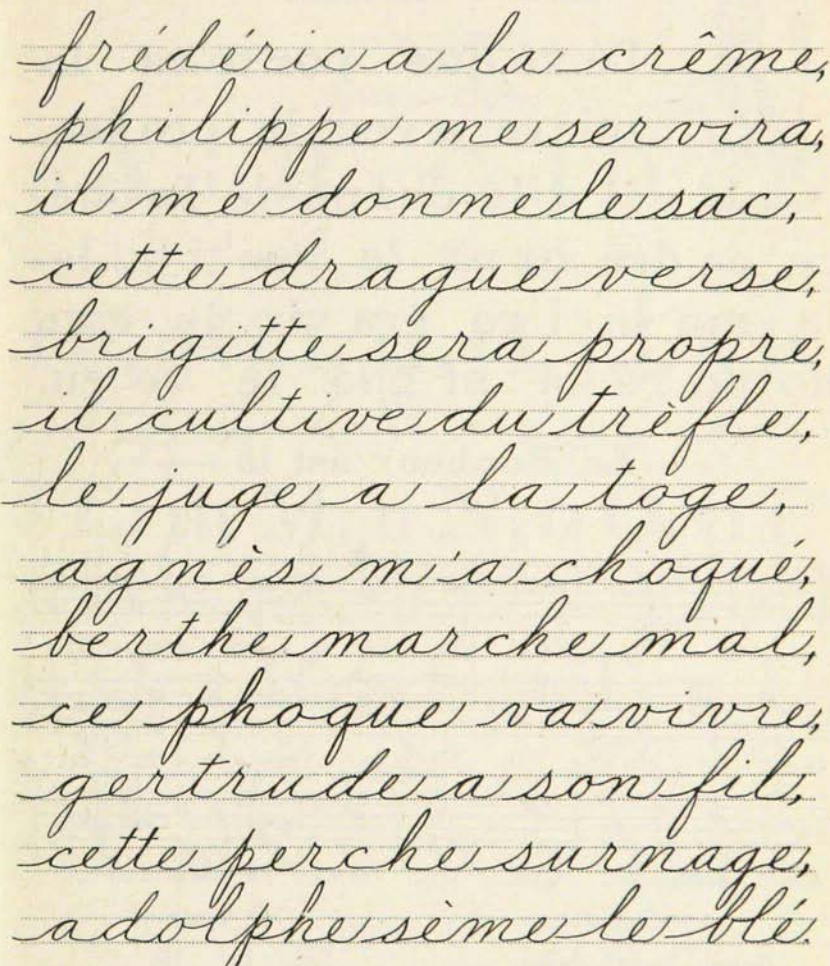 frédéric a la crême,
philippe me servira,
il me donne le sac,
cette drague verse,
brigitte sera propre,
il cultive du trèfle,
le juge a la toge,
agnès m'a choqué,
berthe marche mal,
ce phoque va vivre,
gertrude a son fil,
cette perche surnage,
adolphe sème le blé.